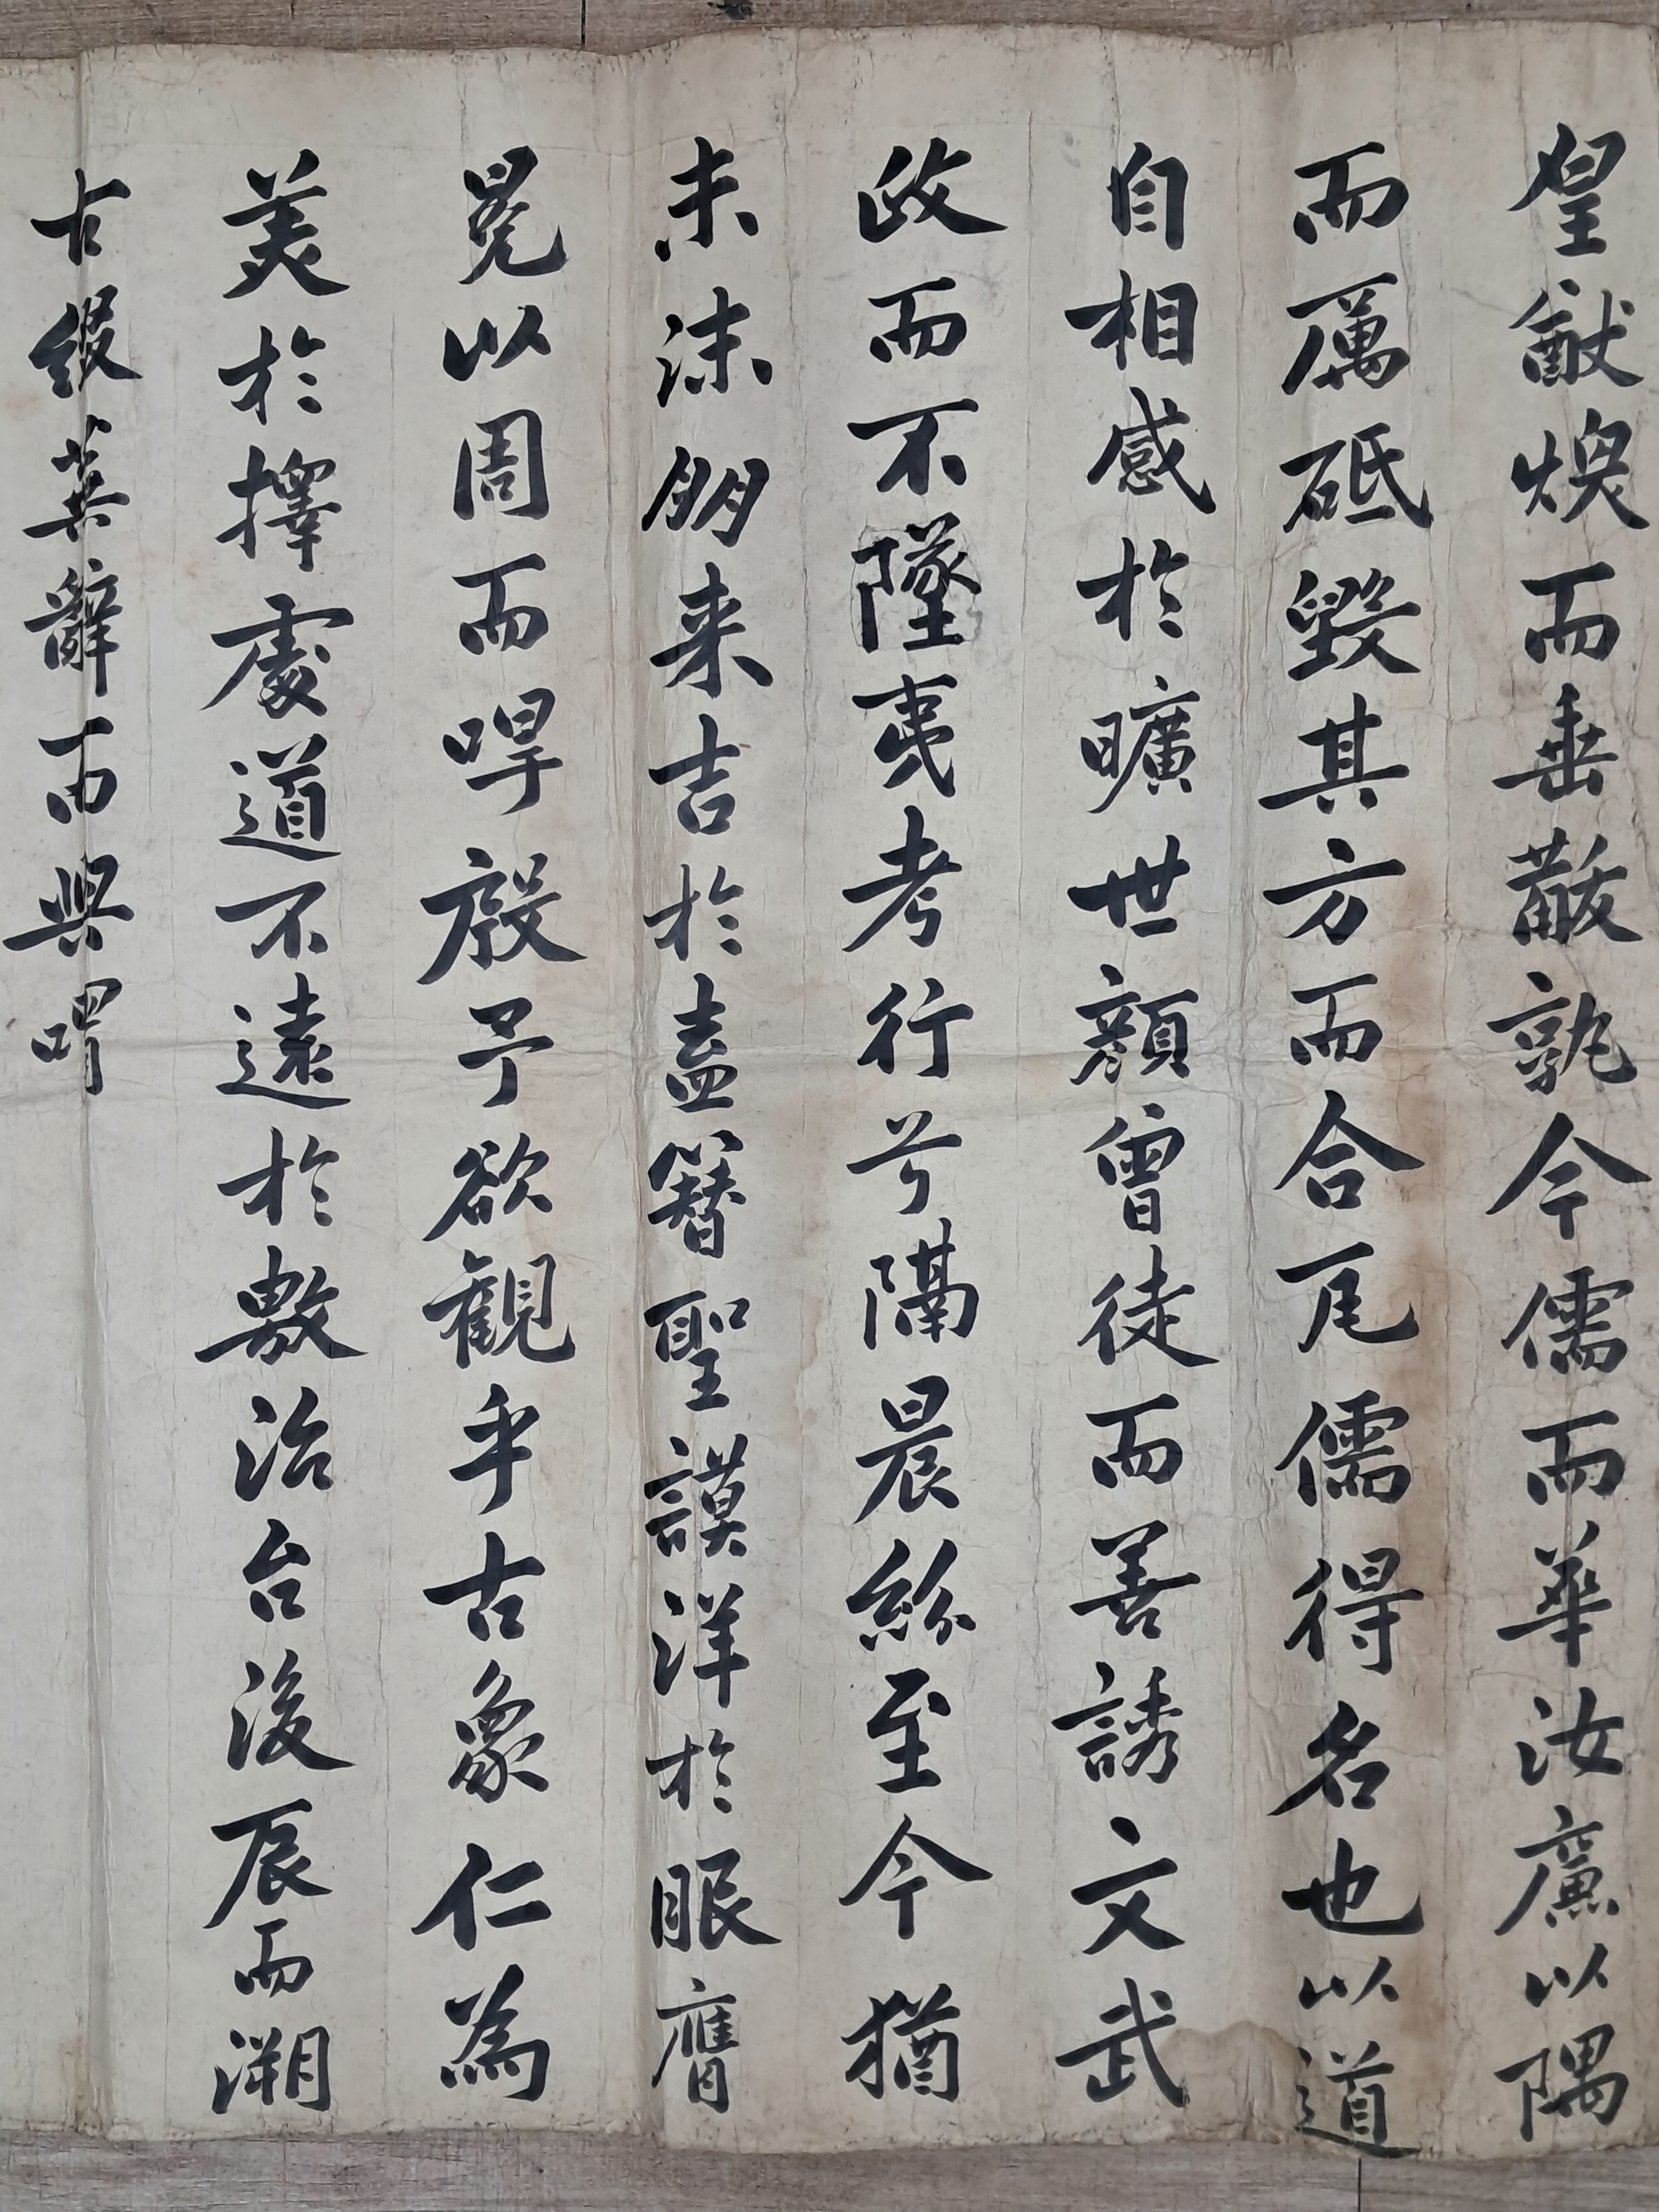 皇猷煥而垂黻孰今儒而華汝廉以隅
而厲砥毀其方而合瓦儒得名也以道
自相感於曠世顔曾徒而善誘文武
政而不墜夷考行兮隔晨絲至今猶
未沫朋来吉於盍簪聖謨洋於眼膺
冕以周而冔殷予欲觀乎古象仁為
美於擇處道不遠於敷治台後辰而溯
古綴蕪辭而興喟